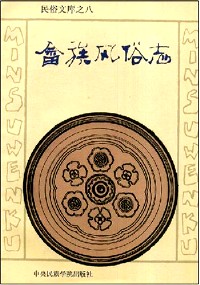 民俗文库之八
畲族风俗志
MINSUWENKU
MINSUWENKU
中央民族学院出版社